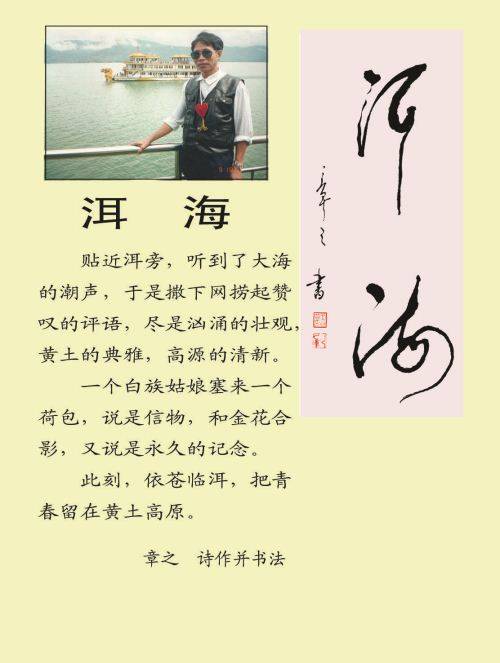 洱海
贴近洱旁，听到了大海
的潮声，于是撒下网捞起赞
叹的评语，尽是汹涌的壮观，
黄土的典雅，高源的清新。
一个白族姑娘塞来一个
荷包，说是信物，和金花合
影，又说是永久的记念。
此刻，依苍临洱，把青
春留在黄土高原。
章之　诗作并书法
洱海
章之书